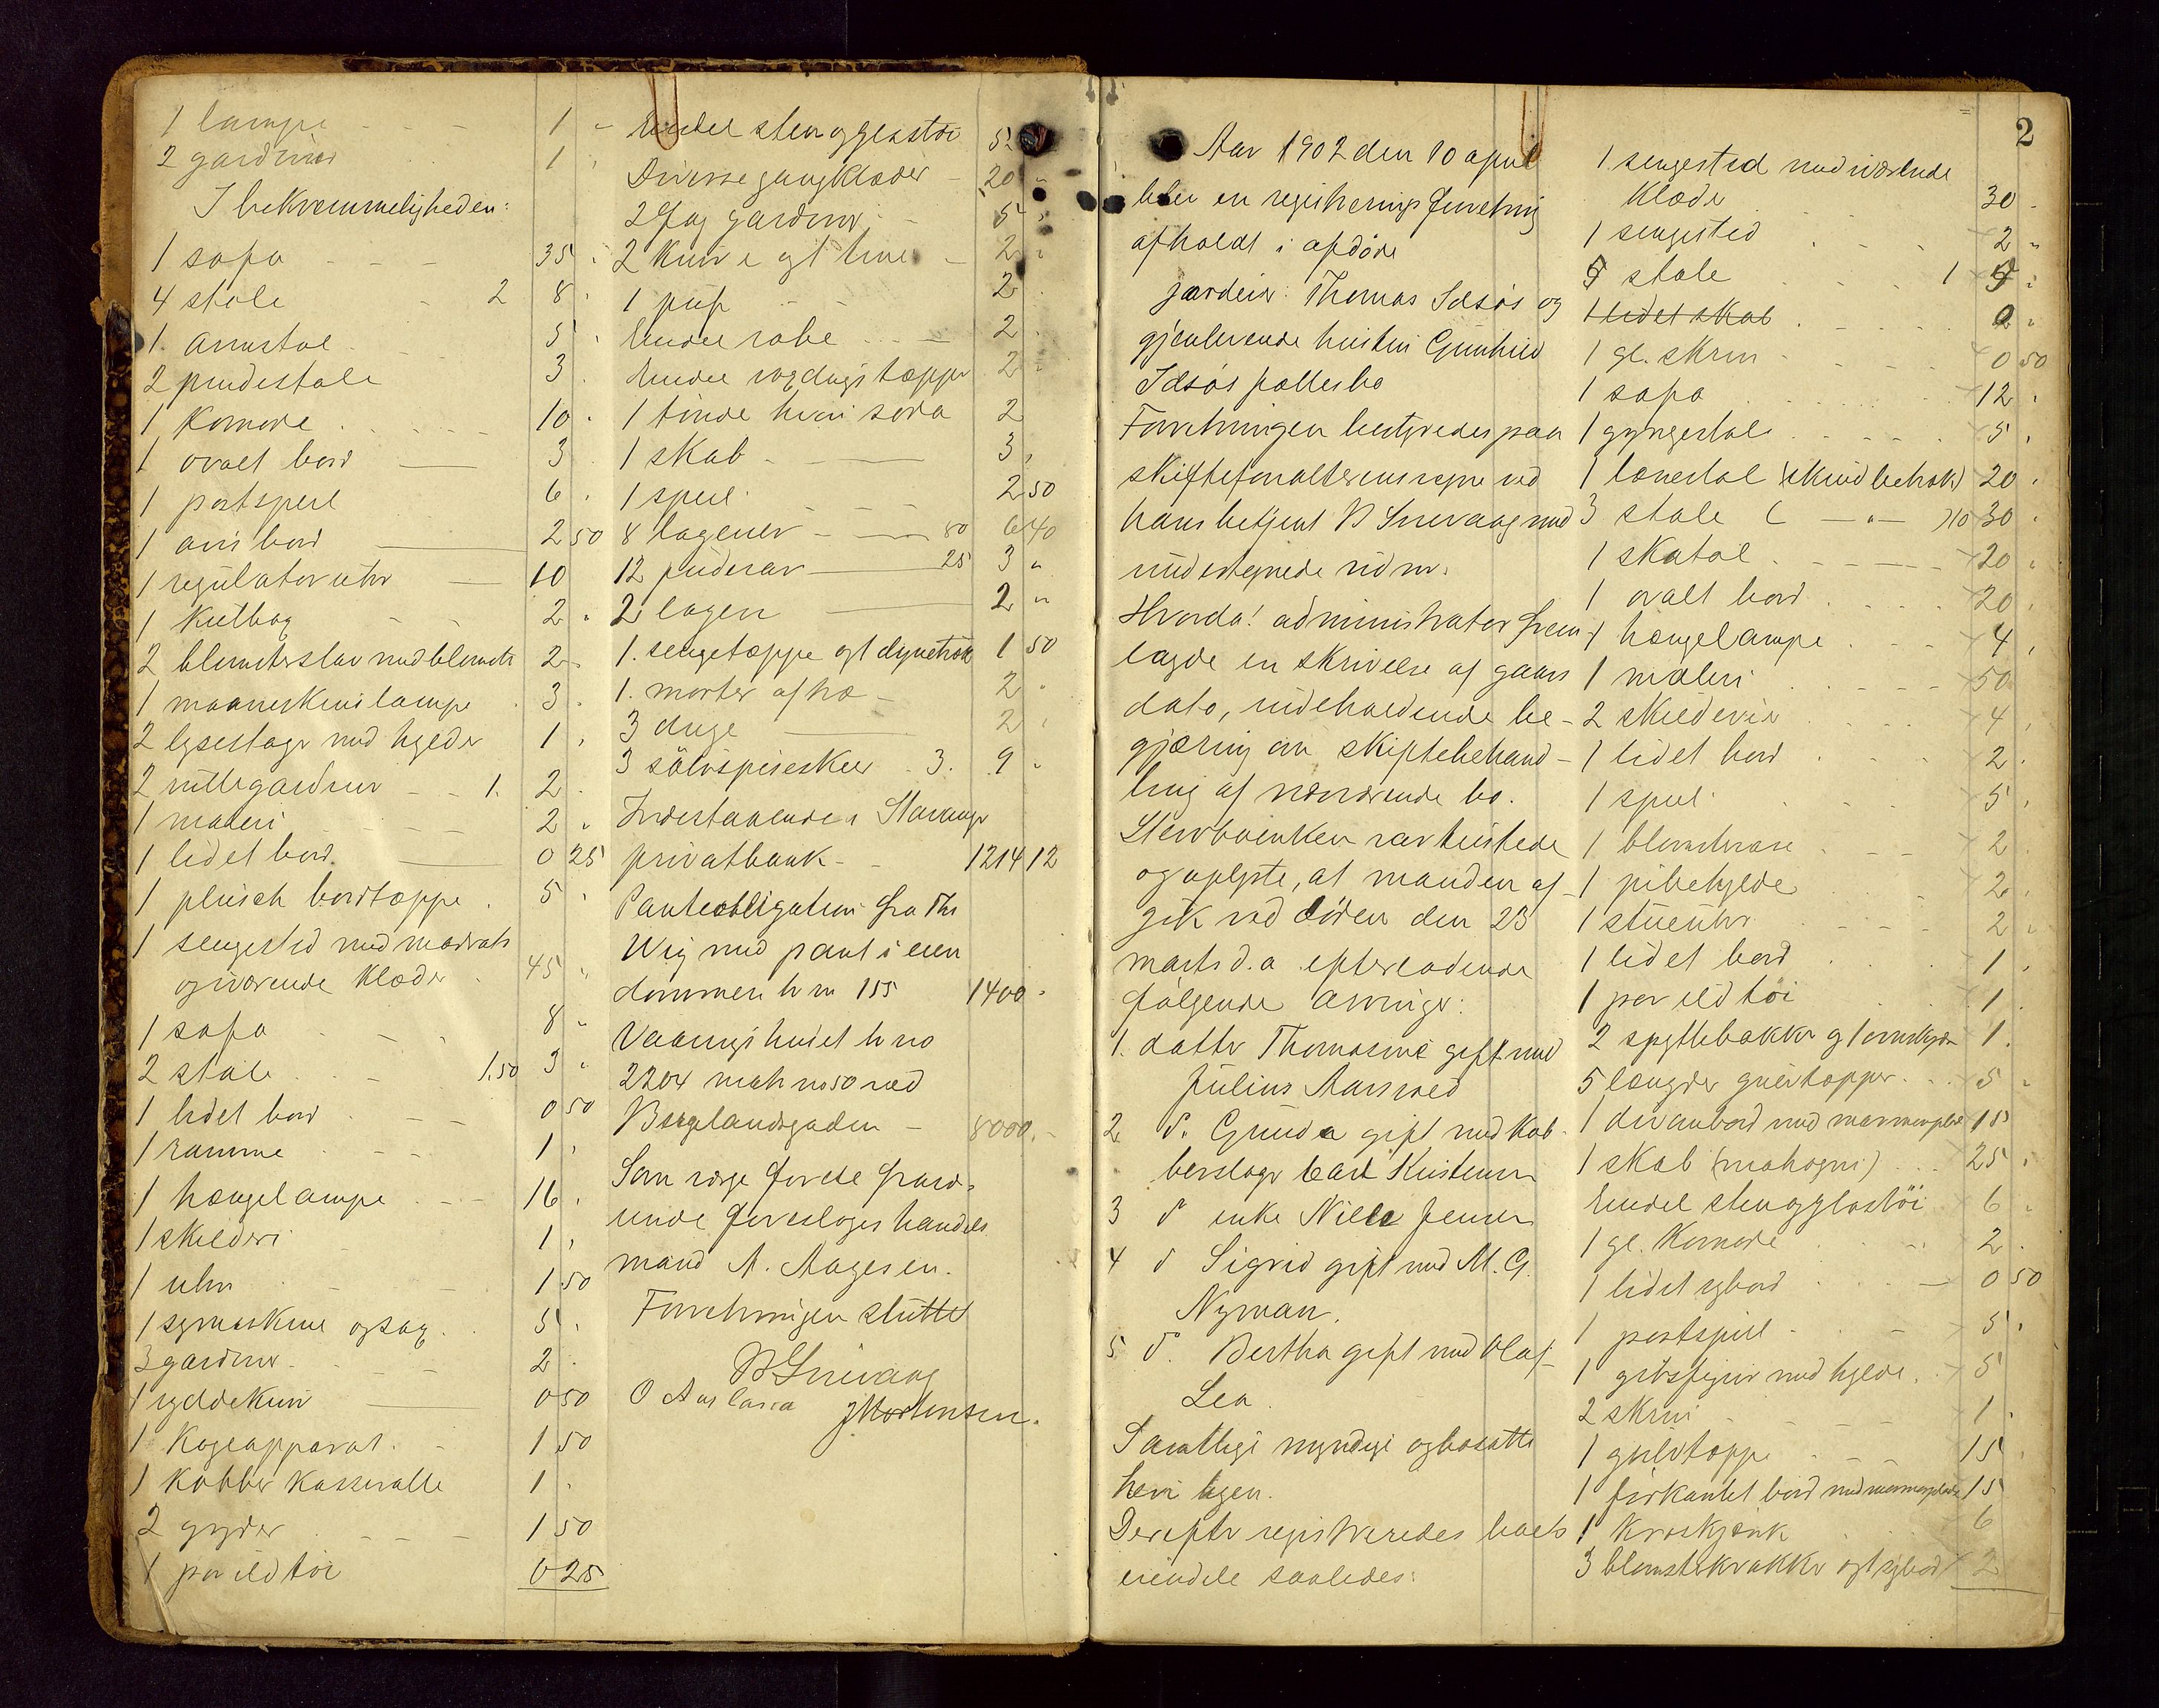 1 lampe - - - 1 -
2 gardiner 1 "
I bekvemmeligheden:
1 sofa - - - 35 "
4 stole - 2 8 "
1. armstol 5 "
2 pindestole 3 "
1 Komode 10 "
1 ovalt bord 3
1 portspeil 6 "
1 avisbord 2 50
1 regulator uhr 10
1 2 "
2 blomster med blomster 2 "
1 maaneskinslampe 3 "
2 lysestager med hylder 1 "
2 rullegardiner - - 1. 2 "
1 maleri 2 "
1 lidet bord 0 25
1 plüsch bordtæppe 5 "
1 sengested med madrats
og iværende klæder 45 "
1 sofa 8 "
2 stole 1.50 3 "
1 lidet bord 0 50
1 ramme 1 "
1 hængelampe 16 "
1 skilderi 1 "
1 uhr 1 50
1 symaskine og sag 5 "
3 gardiner 2 "
1 0 50
1 Kogeapparat 1 50
1 kobber kasserolle 1 "
2 gryder 1 50
1 par ildtøi 0 25
Endel sten og glastøi 5
Diverse gangklæder 20 "
2 Fag gardiner 5 "
2 Kurve og 1 2 "
1 puf 2 "
Endel 2 "
Endel voxdugs tæpper 2 "
1 tønde hvori soda 2
1 skab 3 "
1 speil 2 50
8 lagener 80 6 40
12 pudevar 25 3 "
2 lagen 2 "
1. sengetæppe og 1 dynetræk 1 50
1. morter af træ 2 "
3 duge 2 "
3 sölvspiseskeer 3. 9 "
Indestaaende i Stavanger
privatbank - 1214 12
Panteobligation fra Ths
Wig med pant i eien
dommen br no 155 1400 "
Vaaningshuset br no
2204 matr no 50 ved
Bergelandsgaden - 8000.-
Som værge for de fravæ-
rende foresloges handels
mand A. Aagesen.
Forretningen sluttet
B Snevaag
O JMortensen.
2
Aar 1902 den 10 april
blev en registrerings forretning
afholdt i afdøde
jordeier Thomas Idsøs og
gjenlevende hustru Gunhild
Idsøs fællesbo
Forretningen bestyredes paa
skifteforvalterens vegne ved
hans betjent B Snevaag med
undertegnede vidner.
Hvorda! administrator frem-
lagde en skrivelse af gaars
dato, indeholdende be-
gjæring om skiftebehand-
ling af nærværende bo.
Stervboenken var tilstede
og oplyste, at manden af-
gik ved døden den 23
marts d.a. efterladende
følgende arvinger:
1. datter Thomasine gift med
Julius Aarsved
2 d. Gunda gift med Kob-
berslager Carl Kristensen
3 d enke Nille Jensen
4 d Sigrid gift med M. G.
Nyman.
5 d. Bertha gift med Olaf
Lea.
Samtlige myndige og bosatte
her i byen.
Derefter registreredes boets
eiendele saaledes:
1 sengested med iværende
Klæder 30 -
1 sengested 2 "
5 stole 1 5 "
1 lidet skab
1 gl. skrin 0 50
1 sofa 12 "
1 gyngestol 5 "
1 lænestol (skindbetræk) 20 "
3 stole ( - " - ) 10 30 "
1 skatol 20 "
1 ovalt bord 20 "
1 hængelampe 4 "
1 maleri 50
2 skilderier 4 "
1 lidet bord 2 "
1 speil 5 "
1 blomstervase 2 "
1 pibehylde 2 "
1 stueuhr 2 "
1 lidet bord 1 "
1 par ildtøi 1 "
2 spyttebakker og 1 ovnskjærm 1 "
5 længder gulvtæpper 5 "
1 divanbord med marmorplade 15
1 skab (mahogni) 25 "
Endel sten og glastöi 6 "
1 gl. Komode 2 "
1 lidet sybord 0 50
1 portspeil 5 "
1 gibsfigur med hylde 5
2 skrin 1 "
1 gulvtæppe 15 "
1 firkantet bord med marmorplade 15
1 6
3 blomsterkrukker og 1 sybord 2